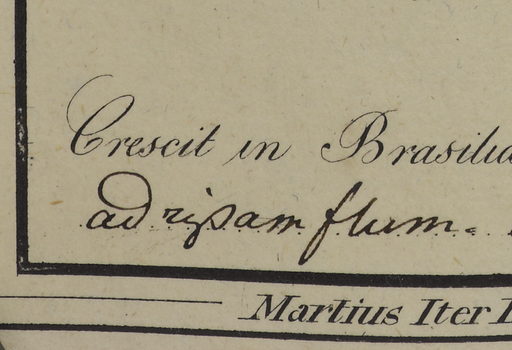 Crescit in Brasilia
ad ripam flum.
Martius Iter